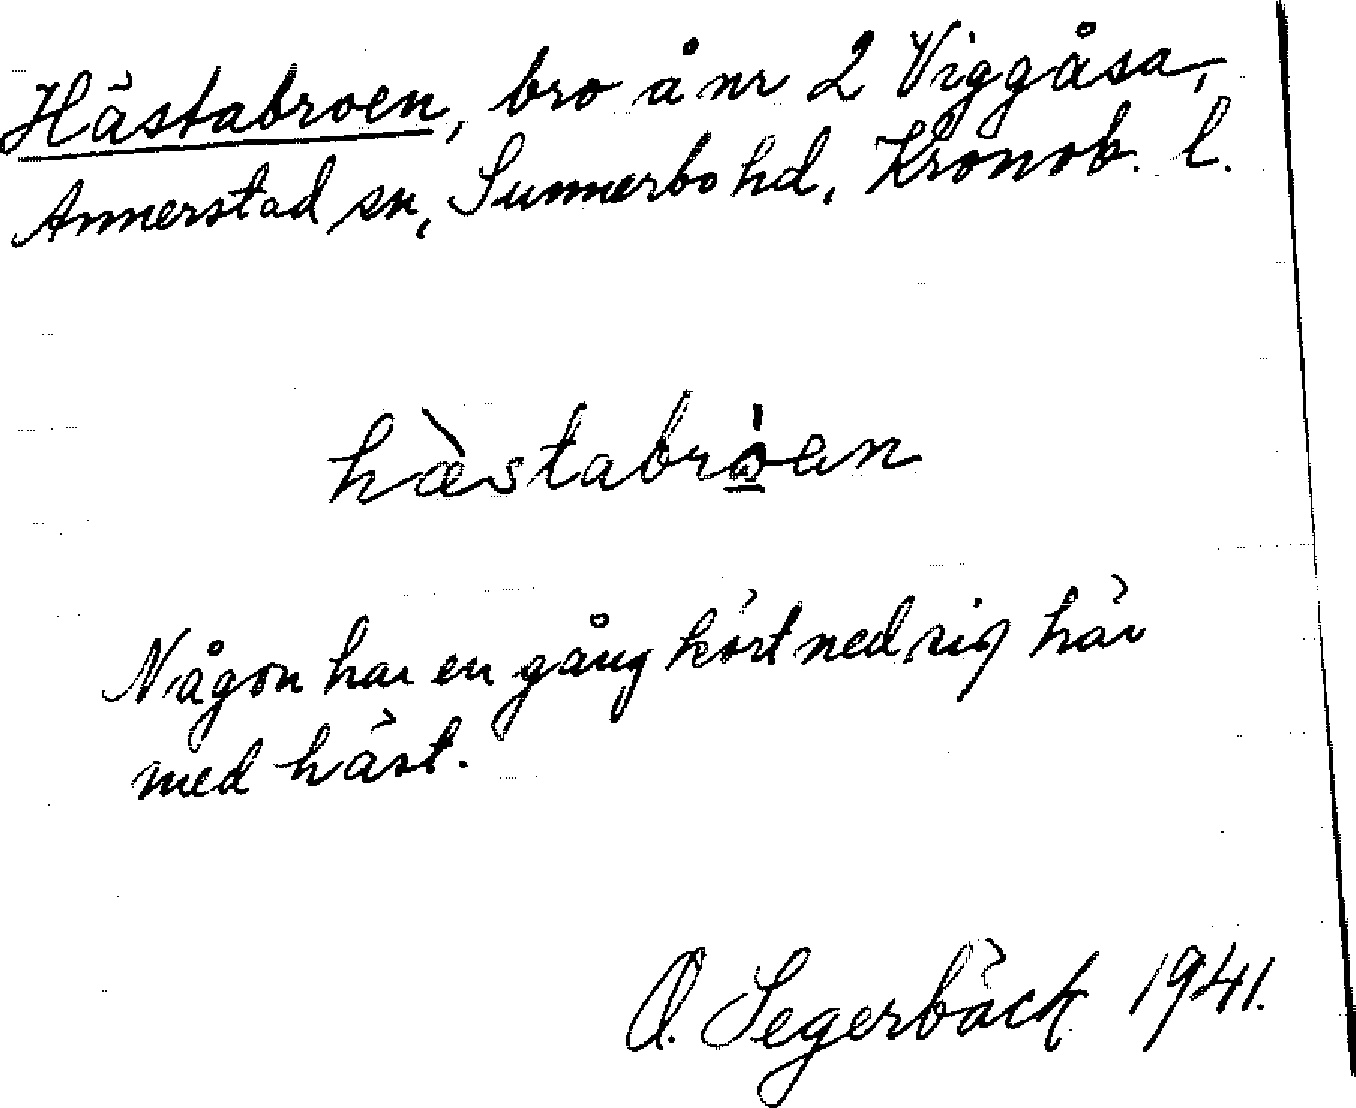 Hästabroen, bro å nr 2 Viggåsa,
Annerstad sn, Sunnerbo hd, Kronob. l.
hæ̀stabrò̲an
Någon har en gång kört ned sig här
med häst.
O. Segerbäck 1941.